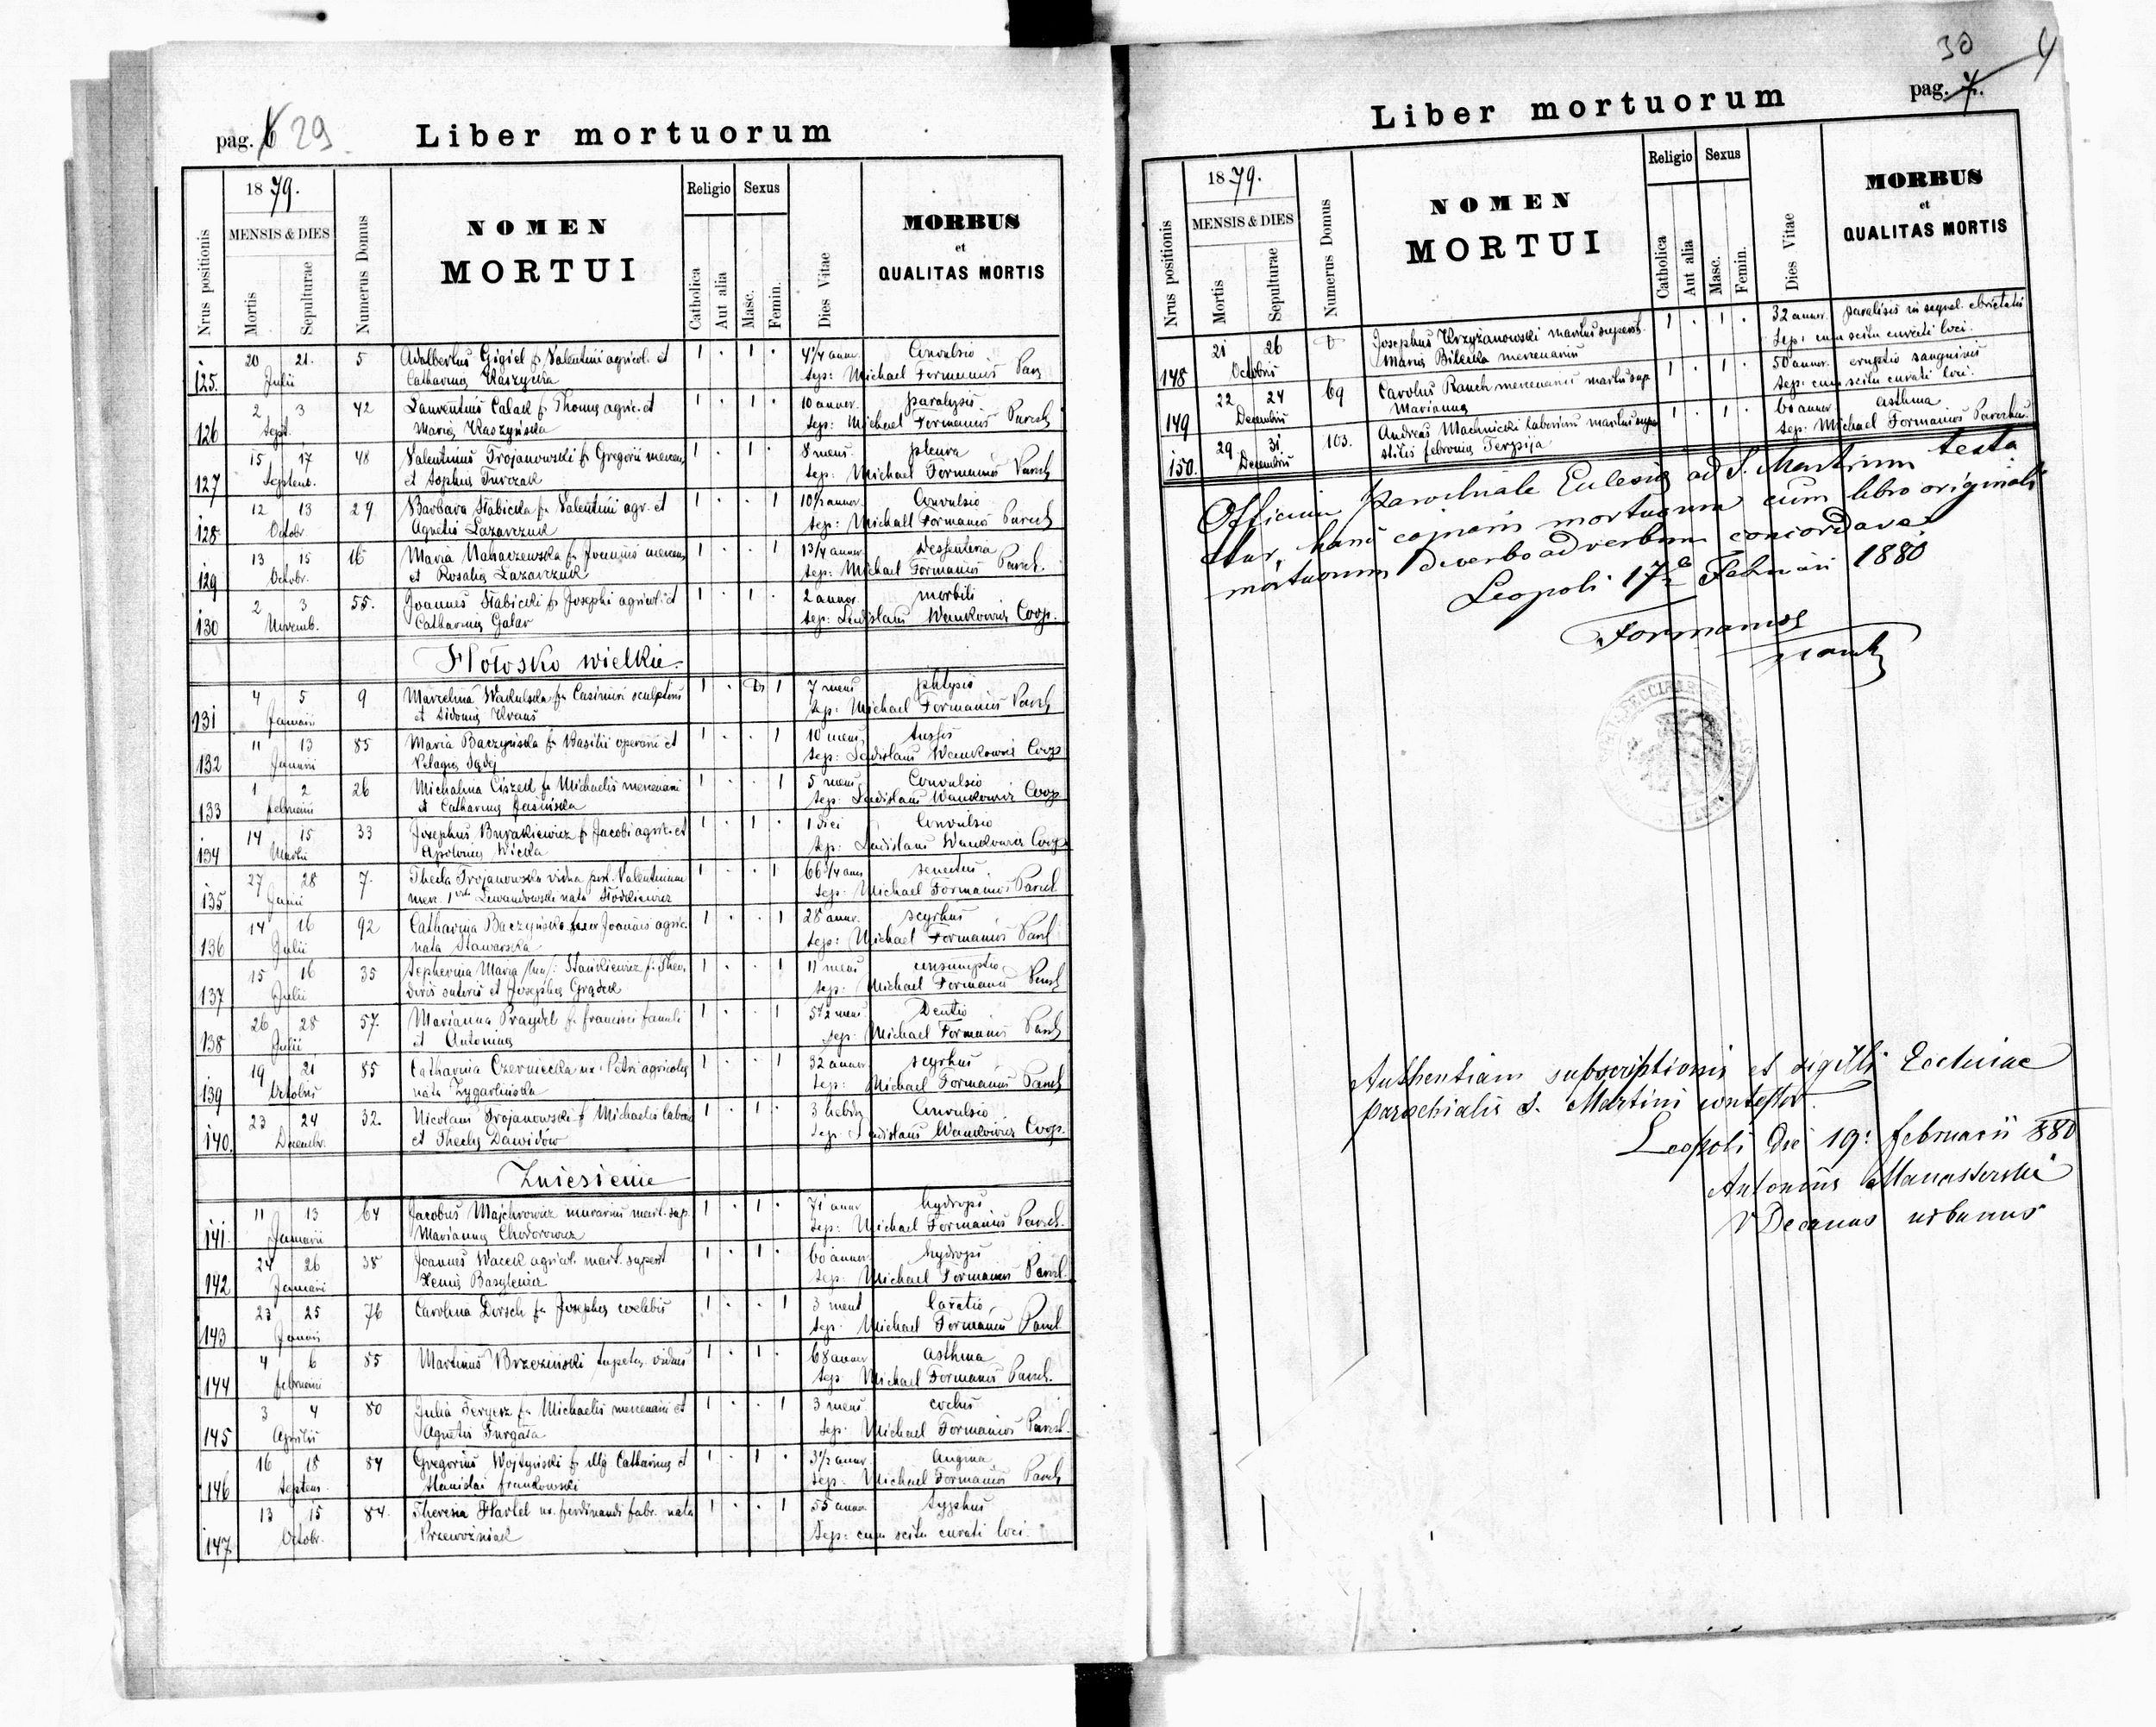 pag. 6 29
Liber mortuorum
Nrus positionis
1879.
MENSIS & DIES
Mortis
Sepulturae
Numerus Domus
NOMEN
MORTUI
Religio
Catholica
Aut alia
Sexus
Masc.
Femin.
Dies Vitae
MORBUS
et
QUALITAS MORTIS
125. 20 21. 5 Adalbertus Gigiel f. Valentini agricol. et 1 . 1 . 4 1/4 annor. Convulsio
Julii Catharinae Kaszycka sep: Michael Formaniös Par
126 2 3 42 Laurentius Calak f. Thomae agric. et 1 . 1 . 10 annor. paralysis
Sept. Maria Kaszyńska sep: Michael Formaniös Paroch
127 15 17 48 Valentinus Trojanowski f. Gregorii mercen. 1 . 1 . 8 mens. pleura
Septemb. et Sophia Turczak sep. Michael Formaniös Paroch
128 12 13 29 Barbara Słabicka f. Valentini agr. et 1 . . 1 10 1/2 annor. Convulsio
Octobr Agnetis Lazarczuk sep. Michael Formaniös Paroch
129 13 15 16 Maria f. Joannis mercen. 1 . . 1 1 3/4 annor.
Octobr. et Rosaliae Lazarczuk sep: Michael Formaniös Paroch.
130 2 3 55. Joannes Słabicki f. Josephi agricol. et 1 . 1 . 2 annor. morbili
Novemb. Catharinae Galar sep: Ladislaus Wankowicz Coop.
Hołosko wielkie
131 4 5 9 Marcelina Wakulska f. Casimiri sculptoris 1 . 1 7 mens phtysis
Januarii et Sidoniae Kraus sep: Michael Formaniös Paroch
132 11 13 85 Maria Baczyńska f. Basilii operarii et 1 . . 1 10 mens. tussis
Januarii Pelagiae sep: Ladislaus Wankowicz Coop
133 1 2 26 Michalina Ciszek f. Michaelis mercenarii 1 . . 1 5 mens Convulsio
februarii et Catharinae Jasińska sep: Ladislaus Wankowicz Coop
134 14 15 33 Josephus Burakiewicz f. Jacobi agric. et 1 . 1 . 1 diei Convulsio
Martii Apoloniae Wicka sep: Ladislaus Wankowicz Coop
135. 27 28 7. Thecla Trojanowska vidua post Valentinum 1 . . 1 66 3/4 ann senectus
Junii merc. Lewandowski nata sep: Michael Formaniös Paroch
136 14 16 92 Catharina Baczyńska uxor Joannis agric. 1 . . 1 28 annor. scyrhus
Julii nata Stawarska sep: Michael Formaniös Paroch
137 15 16 35 Maria Stankiewicz f. Theo 1 . . 1 11 mens consumptio
Julii dori sutoris et Josephae Grądek sep. Michael Formaniös Paroch
138 26 28 57. Marianna Praydel f. francisci famuli 1 . . 1 5 1/2 mens. Dentio
Julii et Antoniae sep. Michael Formaniös Paroch
139 19 21 85 Catharina Czerniecka ux. Petri agricolae 1 . . 1 32 annor scyrhus
Octobris nata Zygarlińska sep: Michael Formaniös Paroch
140. 23 24 32. Nicolaus Trojanowski f. Michaelis labor. 1 . 1 . 3 hebd. Convulsio
Decembr. et Theclae Dawidow sep. Ladislaus Wankowicz Coop.
Zniesienie
141. 11 13 64 Jacobus Majchrowicz murarius marit. sup. 1 . 1 . 71 annor hydrops
Januarii Mariannae Chodorowicz sep: Michael Formaniös Paroch.
142 24 26 38 Joannes Wacek agricol. marit. superst 1 . 1 . 60 annor. hydrops
Januarii Xeniae Basylewicz sep: Michael Formaniös Paroch.
143 23 25 76 Carolina Dorsch f. Josephae coelebis 1 . . 1 3 mens
Junii sep. Michael Formaniös Paroch
144 4 6 85 Martinus Brzeziński viduus 1 . 1 . 68 annor asthma
februarii sep Michael Formaniös Paroch.
145 3 4 80 Julia f. Michaelis mercenarii et 1 . . 1 3 mens
Aprilis Agnetis Furgała sep. Michael Formaniös Paroch.
146 16 18 84 Gregorius Wojtyński f. illg Catharinae et 1 . 1 . 3 1/2 annor. Angina
Septem. Stanislai frankowski sep: Michael Formaniös Paroch
147 13 15 84. Theresia Hartel ux. ferdinandi fabr. nata 1 . . 1 55 annor. typhus
Octobr. Przewoźniak sep: cum scitu curati loci.
30 4
pag. 7.
Liber mortuorum
Nrus positionis
1879.
MENSIS & DIES
Mortis
Sepulturae
Numerus Domus
NOMEN
MORTUI
Religio
Catholica
Aut alia
Sexus
Masc.
Femin.
Dies Vitae
MORBUS
et
QUALITAS MORTIS
148 21 26 Josephus Krzyżanowski maritus superst. 1 . 1 . 32 annor. paralisis in sequel. ebrietatis
Octobris Maria Bilecka mercenarius sep: cum scitu curati loci.
149 22 24 69 Carolus Rauch mercenarius maritus sup. 1 . 1 . 50 annor. eruptio sanguinis
Decembris Marianna sep: cum scitu curati loci.
150. 29 31 103. Andreas Machnicki laborius maritus supe 1 . 1 . 60 annor asthma
Decembris stitis febronia Terpija sep: Michael Formaniös Parochus.
Officium parochiale Ecclesiae ad S. Martinum testa
tur, hanc copiam mortuorum cum libro originali
mortuorum de verbo ad verbum concordare
Leopoli 17a Februarii 1880
Formaniös
Paroch
Authentiam subscriptionis et sigilli Ecclesiae
parochialis S. Martini contestor.
Leopoli die 19. februarii 880
Antonius Manasterski
VDecanus urbanus